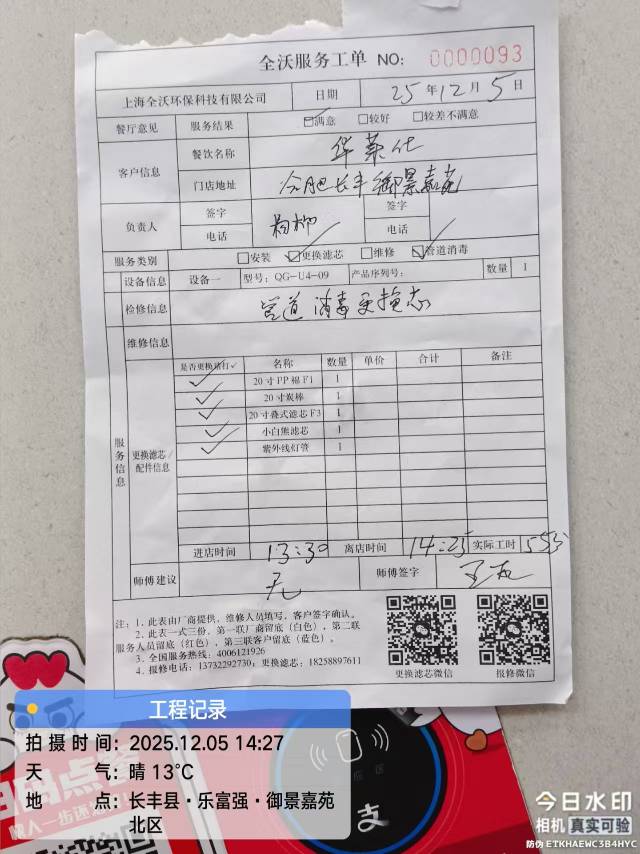 全沃服务工单 NO: 0000093
上海全沃环保科技有限公司 日期 25年12月5日
餐厅意见 服务结果 ☑满意 □较好 □较差不满意
客户信息 餐饮名称 华莱仕
门店地址 合肥长丰御景嘉苑
负责人 签字 签字
电话 电话
服务类别 □安装 ☑更换滤芯 □维修 ☑管道消毒
设备信息 设备一 型号: QG-U4-09 产品序列号: 数量 1
检修信息 管道消毒更换芯
维修信息
服务信息 更换滤芯/配件信息
是否更换请打✓ 名称 数量 单价 合计 备注
✓ 20寸PP棉F1 1
✓ 20寸炭棒 1
✓ 20寸叠式滤芯F3 1
✓ 小白熊滤芯 1
✓ 紫外线灯管 1
进店时间 13:30 离店时间 14:25 实际工时 55分
师傅建议 无 师傅签字
注: 1. 此表由厂商提供, 维修人员填写, 客户签字确认。
2. 此表一式三份, 第一联厂商留底(白色), 第二联
服务人员留底(红色), 第三联客户留底(蓝色)。
3. 全国服务热线: 4006121926
4. 报修电话: 13732292730; 更换滤芯: 18258897611
更换滤芯微信 报修微信
工程记录
拍摄时间: 2025.12.05 14:27
天 气: 晴 13℃
地 点: 长丰县·乐富强·御景嘉苑
北区
支
今日水印
相机 真实可验
防伪 ETKHAEWC3B4HYC